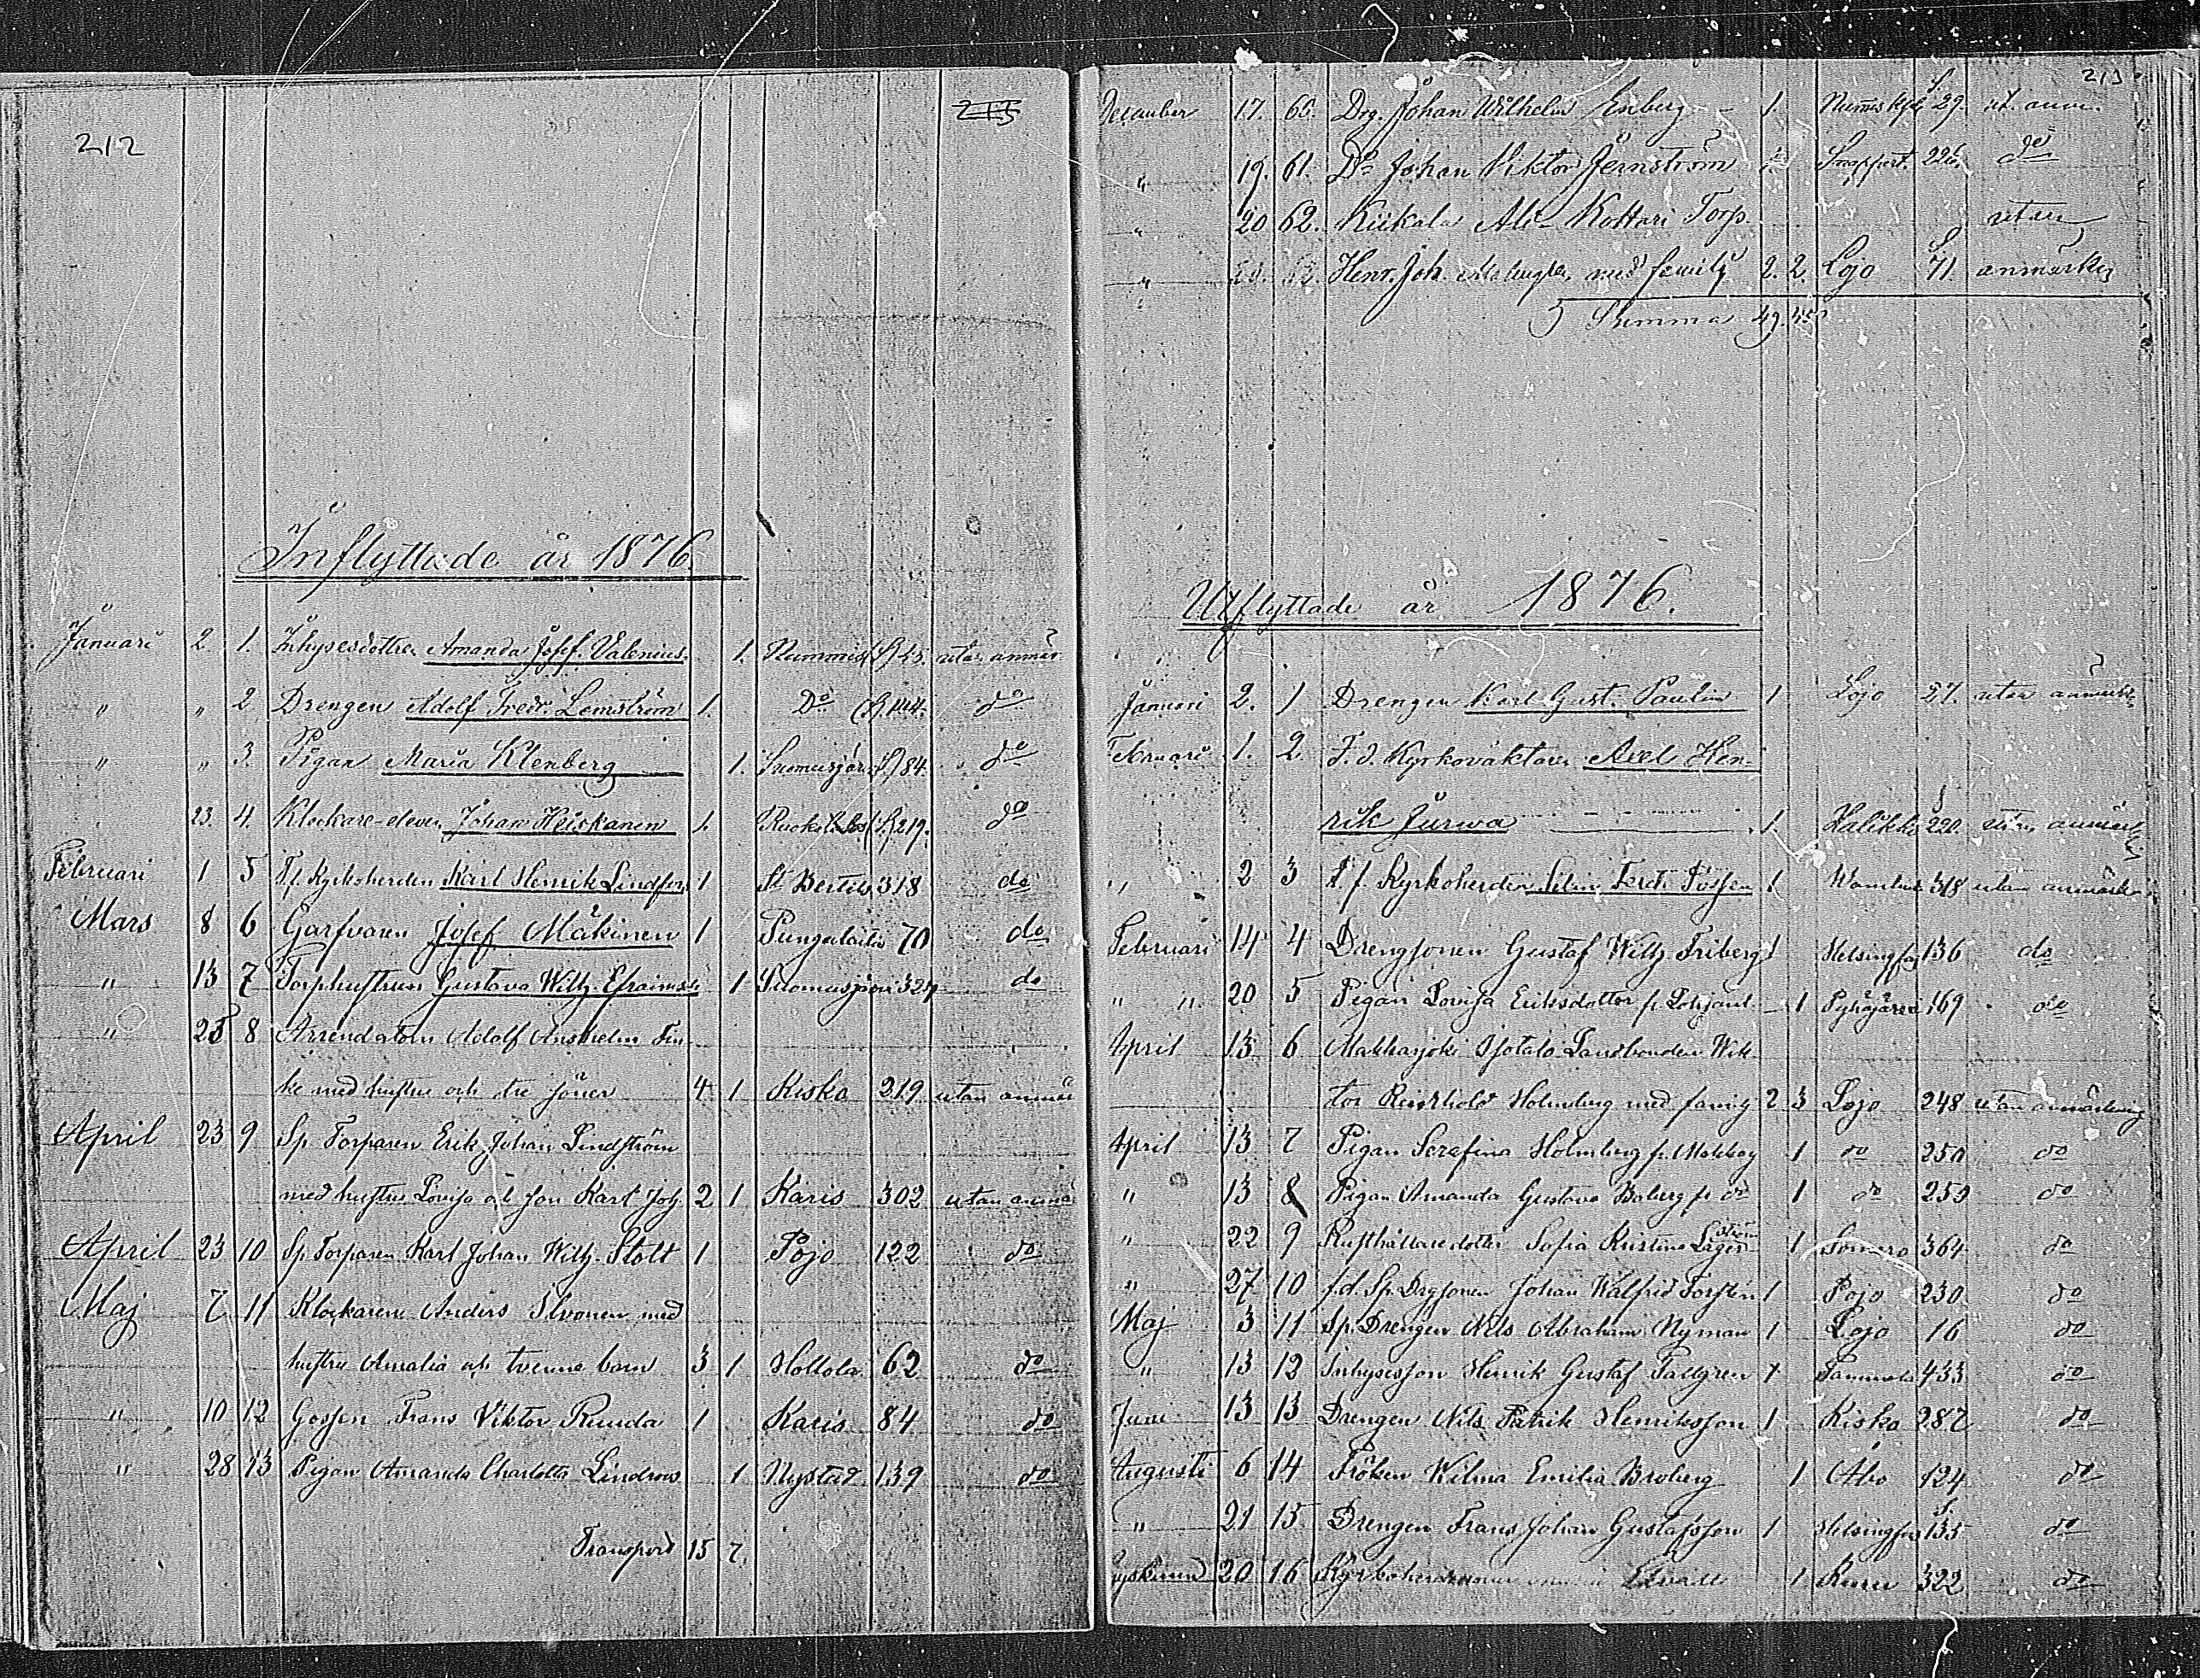 212
Inflyttade år 1876.
Januari 2. 1. Inhysesdottren Amanda Josef. Valenius. 1. Nummis (S) 45. utan anmär
" " 2 Drengen Adolf Fredr. Lemström 1. Do (S. 144. do
" " 3. Pigan Maria Klenberg 1. Suomusjärvi (S) 84. do
23. 4. Klockare-eleven Johan Heiskanen 1. (S. 219. do
Februari 1 5 T.f. Kyrkoherden Karl Henrik Lindfors 1 St Bertils 318 do
Mars 8 6 Garfvaren Josef Mäkinen 1 Pungalaitio 70 do
" 13 7 Torphustrun Gustava Wilh. Efraimsdr 1 Suomusjärvi 324 do
" 25 8 Arrendatorn Adolf Anshelm Fin-
ke med hustru och tre söner 4 1 Kisko 219 utan anmär
April 23 9 Sp. Torparen Erik Johan Lindström
med hustru Lovisa och son Karl Joh 2 1 Karis 302 utan anmä
April 23 10 Sp. Torparen Karl Johan Wilh. Stolt 1 Pojo 122 do
Maj 7 11 Klockaren Anders Ilvonen med
hustru Amalia och tvenne barn 3 1 Hollola 62 do
" 10 12 Gossen Frans Viktor Ruuda 1 Karis 84 do
" 28 13 Pigan Amanda Charlotta Lindroos 1 Nystad 139 do
Transport 15 7.
213
December 17. 60. Drg. Johan Wilhelm Enberg 1. Nummis kpl. 29. ut. anm.
" 19. 61. Do Johan Viktor Jernström 1. Snappert. 226. do
" 20 62. Kiikala Ali-Kottari Torp. utan
" Henr. Joh. med familj 2. 2. Lojo S. 71. anmärkn
Summa 49. 45
Utflyttade år 1876.
Januari 2. 1 Drengen Karl Gust. Paulin 1 Lojo 27. utan anmärk
Februari 1. 2. F. d. Kyrkovaktaren Axel Hen-
rik Jurwa 1. Halikko 220. utan anmärk
" 2 3 T. f. Kyrkoherden 1 318 utan anmärkn
Februari 14 4 Drengsonen Gustaf Wilh. Friberg 1 Helsingfors 136 do
" " 20 5 Pigan Lovisa Eriksdotter fr. 1 Pyhäjärvi 169 do
April 13 6 Makkarjoki Isotalo Landbonden Wik-
tor Reinhold Holmberg med familj 2 3 Lojo 248 utan anmärkning
April 13 7 Pigan Serafina Holmberg fr. Makkarj 1 do 250 do
" 13 8 Pigan Amanda Gustava Boberg fr do 1 do 250 do
" 22 9 Rusthållaredotter Sofia Kristina Lagerström 1 Somero 364 do
" 27 10 f.d. Sp. Drgsonen Johan Walfrid Forstén 1 Pojo 230 do
Maj 3 11 Sp. Drengen Nils Abraham Nyman 1 Lojo 16 do
" 13 12 Inhysesson Henrik Gustaf Tallgren 1 Sammatti 433 do
Juni 13 13 Drengen Nils Patrik Henriksson 1 Kisko 287 do
Augusti 6 14 Fröken Wilma Emilia Broberg 1 Åbo 124 do
" 21 15 Drengen Frans Johan Gustafsson 1 Helsingfors 135 do
20 16 322 do